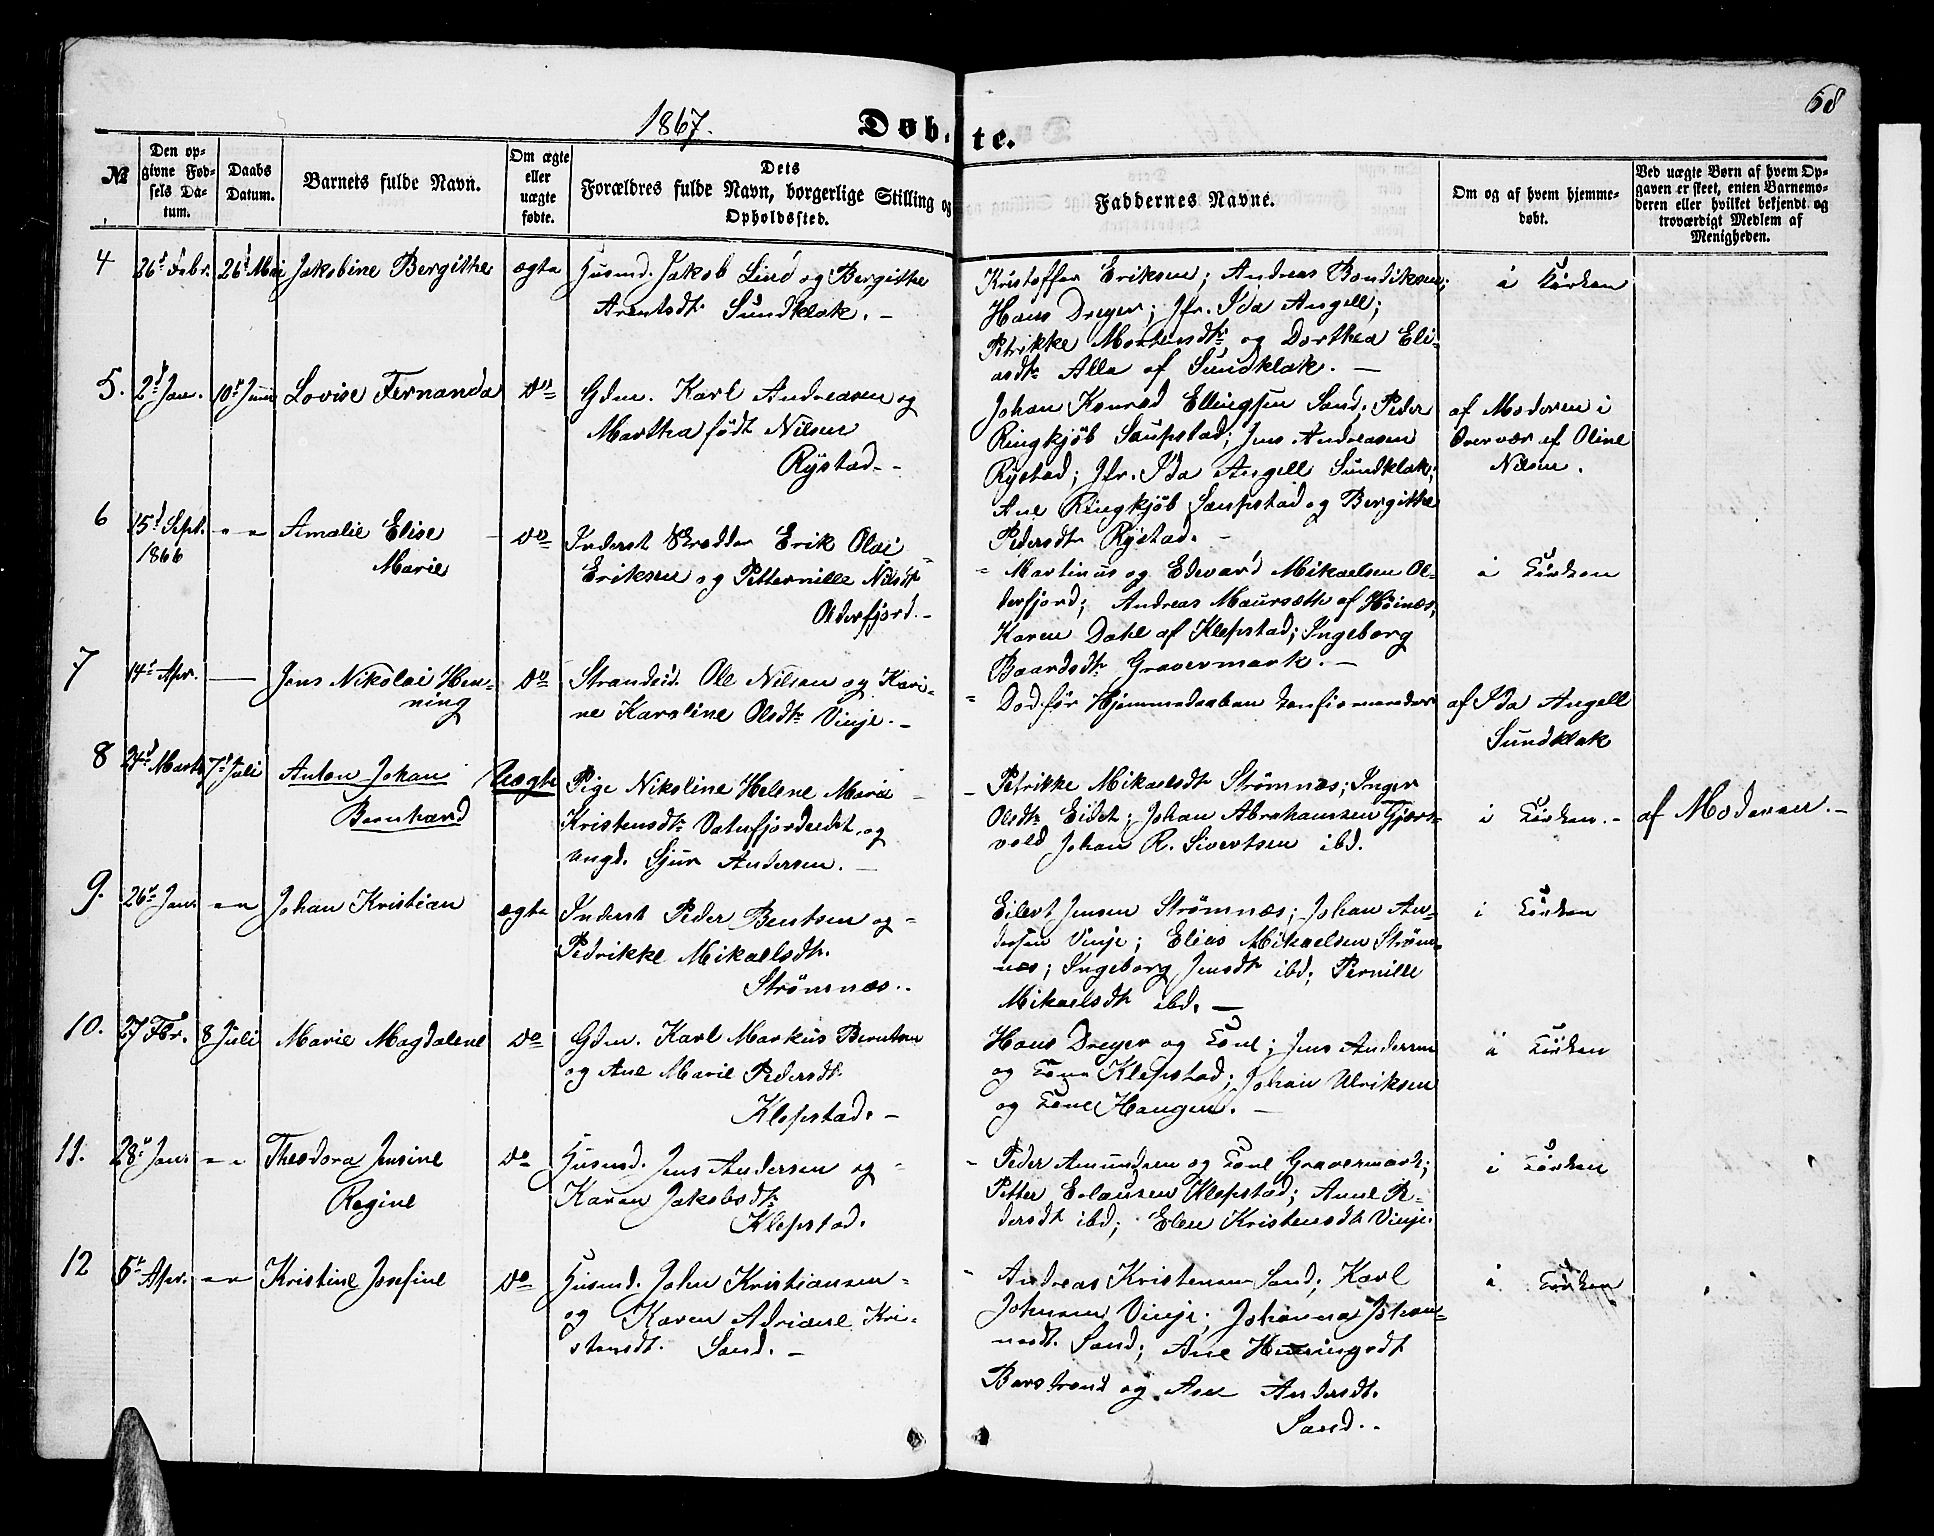 68
1867.
Døbte.
№
Den opgivne Fødsels Datum.
Daabs Datum.
Barnets fulde Navn.
Om ægte eller uægte fødte.
Dets Forældres fulde Navn, borgerlige Stilling og Opholdssted.
Faddernes Navne.
Om og af hvem hjemmedøbt.
Ved uægte Børn af hvem Opgaven er skeet, enten Barnemoderen eller hvilket bekjendt og troværdigt Medlem af Menigheden.
4 26d Febr. 26d Mai Jakobine Bergithe ægte
Husmd. Jakob Lind og Bergithe
Arentsdtr. Sundklak. -
Kristoffer Eriksen; Andreas Bendiksen;
Hans Dreyer; Jfr. Ida Angell;
Petrikke Mortensdtr. og Dorthea Eli-
asdtr. Alle af Sundklak. -
i Kirken
5. 2d Jan. 10d Juni Lovise Fernanda Do
Gdm. Karl Andreasen og
Martha født Nilsen
Rystad. -
Johan Konrad Ellingsen Sand; Peder
Ringkjøb Saupstad; Jens Andreasen
Rystad; Jfr. Ida Angell Sundklak;
Ane Ringkjøb Saupstad og Bergithe
Pedersdtr. Rystad. -
af Moderen i
Overvær af Oline
Nilsen.
6 15d Sept. 1866 " " Amalie Elise
Marie
Do
Inderst Skrædder Erik Olai
Eriksen og Petternille Nilsdtr.
Olderfjord. -
- Martinus og Edevard Mikaelsen Ol-
derfjord; Andreas Maursætt af Høinæs;
Karen Dahl af Klepstad; Ingeborg
Baardsdtr. Gravermark. -
i Kirken
7 14d Apr. — Jens Nikolai Hen-
ning
Do
Strandsid. Ole Nilsen og Kari-
ne Karoline Olsdtr. Vinje. -
- Død før Hjemmedaaben confirmeredes
af Ida Angell
Sundklak
8 24d Marts 7d Juli Anton Johan
Bernhard
Uægte
Pige Nikoline Helene Marie
Kristensdtr. Vatnfjordeidet og
Ungd. Sjur Andersen. -
- Petrikke Mikaelsdtr. Strømnæs; Inger
Olsdtr. Eidet; Johan Abrahamsen Gjers-
vold Johan R. Sivertsen ibd.
i Kirken. -
af Moderen. -
9. 26d Jan. " " Johan Kristian ægte
Inderst Peder Bentsen og
Pedrikke Mikaelsdtr.
Strømnæs. -
Eilert Jensen Strømnæs; Johan An-
dersen Vinje; Elias Mikaelsen Strøm-
næs; Ingeborg Jensdtr. ibd; Pernille
Mikaelsdtr. ibd. -
i Kirken
10. 27 Fbr. 8 Juli Marie Magdalene Do
Gdm. Karl Markus Berntsen
og Ane Marie Pedersdtr.
Klepstad. -
Hans Dreyer og Kone; Jens Andersen
og Kone Klepstad; Johan Ulriksen
og Kone Haugen. -
i Kirken
11. 28d Jan. " " Theodora Jensine
Regine
Do
Husmd. Jens Andersen og
Karen Jakobsdtr.
Klepstad.
- Peder Amundsen og Kone Gravermark;
Petter Elausen Klepstad; Anne Pe-
dersdtr. ibd; Elen Kristensdtr. Vinje.
i Kirken
12 5d Apr. " " Kristine Josefine Do
Husmd. John Kristiansen
og Karen Adriane Kri-
stensdt. Sand. -
- Andreas Kristensen Sand; Karl
Johnsen Vinje; Johanna Johan-
nesdt. Sand; Ane Henningsdt
Barstrand og Ane Andersdt.
Sand. -
i Kirken